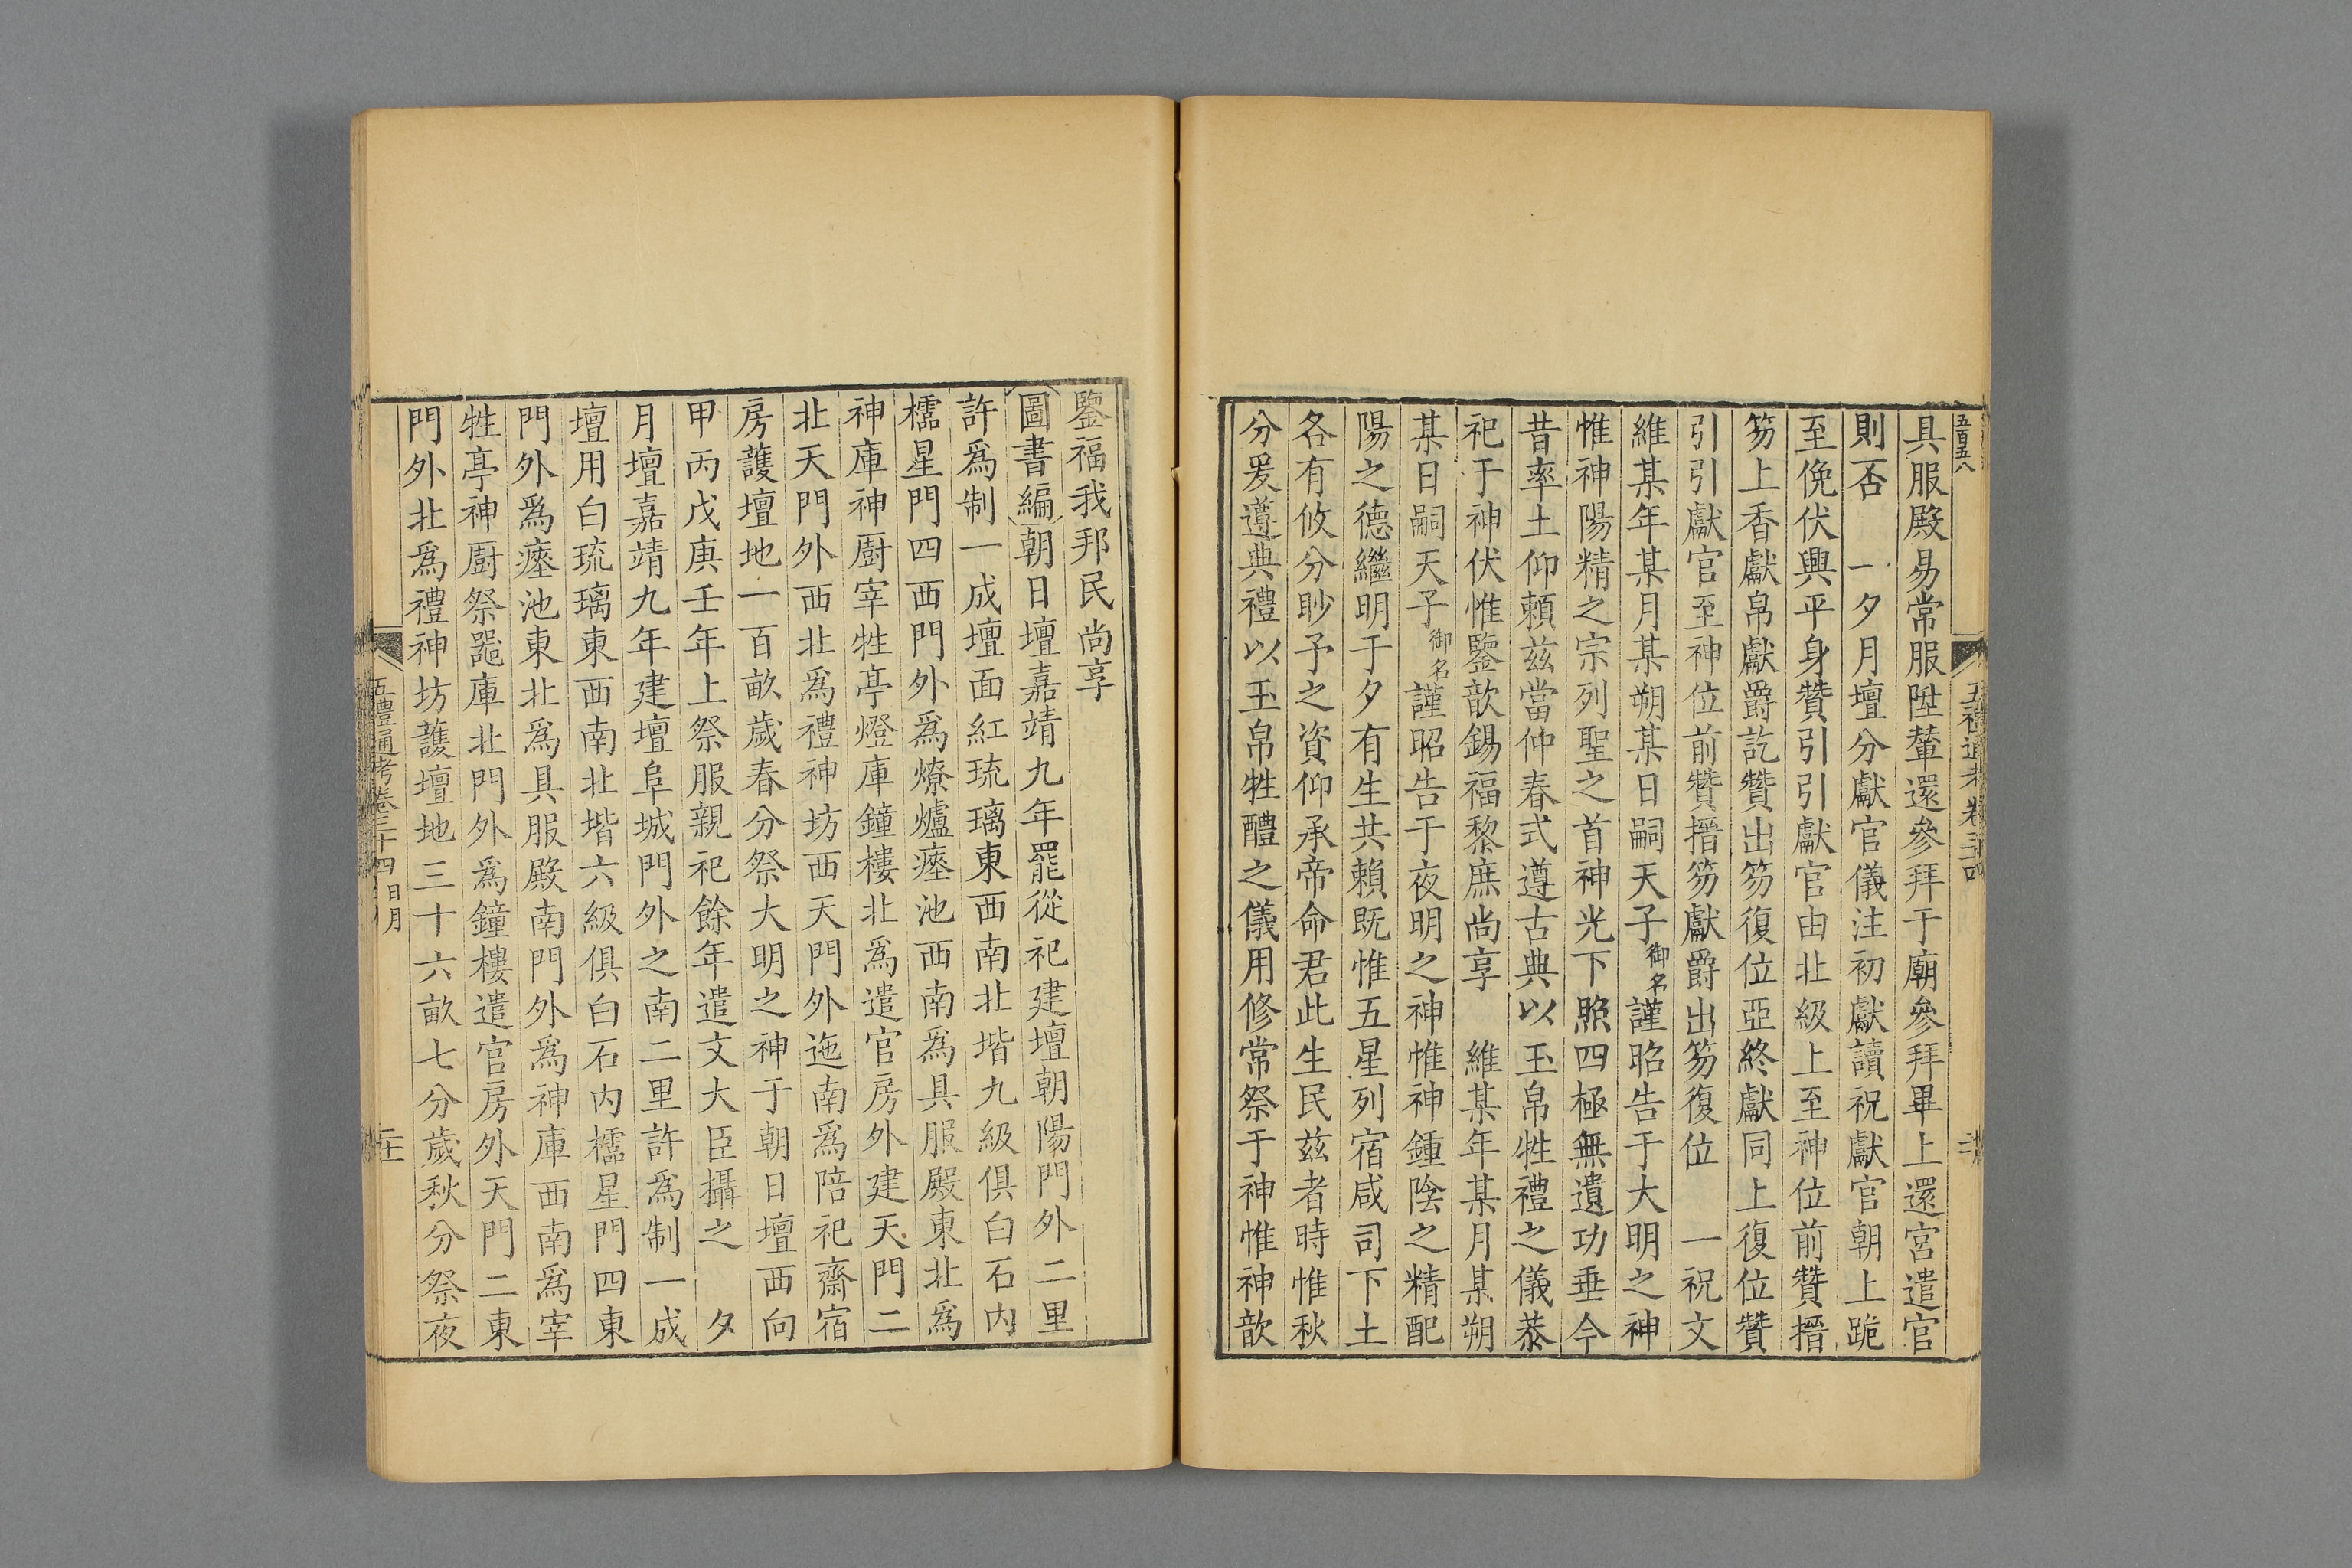 五百五八
五禮通考卷三十四
具服殿易常服陞輦還參拜于廟參拜畢上還宮遣官
則否　一夕月壇分獻官儀注初獻讀祝獻官朝上跪
至俛伏興平身贊引引獻官由北級上至神位前贊搢
笏上香獻帛獻爵訖贊出笏復位亞終獻同上復位贊
引引獻官至神位前贊搢笏獻爵出笏復位　一祝文
維某年某月某朔某日嗣天子御名謹昭告于大明之神
惟神陽精之宗列聖之首神光下照四極無遺功垂今
昔率土仰賴茲當仲春式遵古典以玉帛牲禮之儀恭
祀于神伏惟鑒歆錫福黎庶尚享　維某年某月某朔
某日嗣天子御名謹昭告于夜明之神惟神鍾陰之精配
陽之德繼明于夕有生共賴既惟五星列宿咸司下土
各有攸分眇予之資仰承帝命君此生民茲者時惟秋
分爰遵典禮以玉帛牲醴之儀用修常祭于神惟神歆
鑒福我邦民尚享
圖書編朝日壇嘉靖九年罷從祀建壇朝陽門外二里
許爲制一成壇面紅琉璃東西南北堦九級俱白石内
櫺星門四西門外爲燎爐瘞池西南爲具服殿東北爲
神庫神厨宰牲亭燈庫鐘樓北爲遣官房外建天門二
北天門外西北爲禮神坊西天門外迤南爲陪祀齋宿
房護壇地一百畝歲春分祭大明之神于朝日壇西向
甲丙戊庚壬年上祭服親祀餘年遣文大臣攝之　夕
月壇嘉靖九年建壇阜城門外之南二里許爲制一成
壇用白琉璃東西南北堦六級俱白石内櫺星門四東
門外爲瘞池東北爲具服殿南門外爲神庫西南爲宰
牲亭神厨祭器庫北門外爲鐘樓遣官房外天門二東
門外北爲禮神坊護壇地三十六畝七分歲秋分祭夜
五禮通考卷三十四　日月